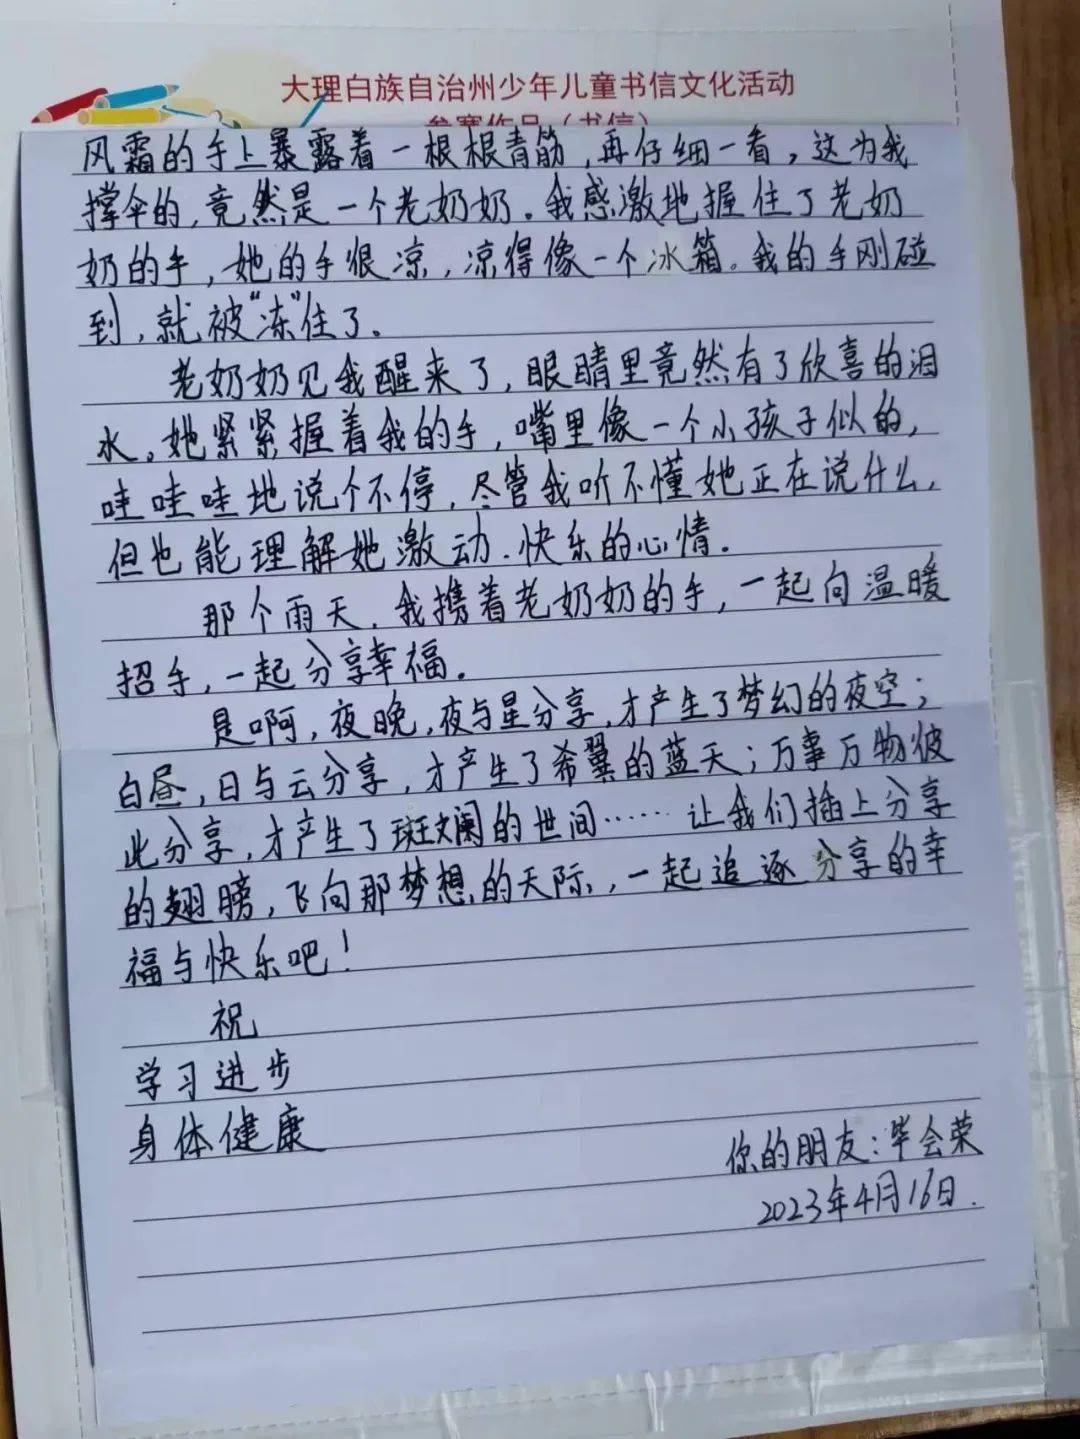 大理白族自治州少年儿童书信文化活动
参赛作品（书信）
风霜的手上暴露着一根根青筋,再仔细一看,这为我
撑伞的,竟然是一个老奶奶。我感激地握住了老奶
奶的手,她的手很凉,凉得像一个冰箱。我的手刚碰
到,就被“冻”住了。
老奶奶见我醒来了,眼睛里竟然有了欣喜的泪
水。她紧紧握着我的手,嘴里像一个小孩子似的,
哇哇哇地说个不停,尽管我听不懂她正在说什么,
但也能理解她激动.快乐的心情。
那个雨天,我携着老奶奶的手,一起向温暖
招手,一起分享幸福。
是啊,夜晚,夜与星分享,才产生了梦幻的夜空;
白昼,日与云分享,才产生了希翼的蓝天;万事万物彼
此分享,才产生了斑斓的世间……让我们插上分享
的翅膀,飞向那梦想的天际,一起追逐分享的幸
福与快乐吧!
祝
学习进步
身体健康
你的朋友:毕会荣
2023年4月16日.